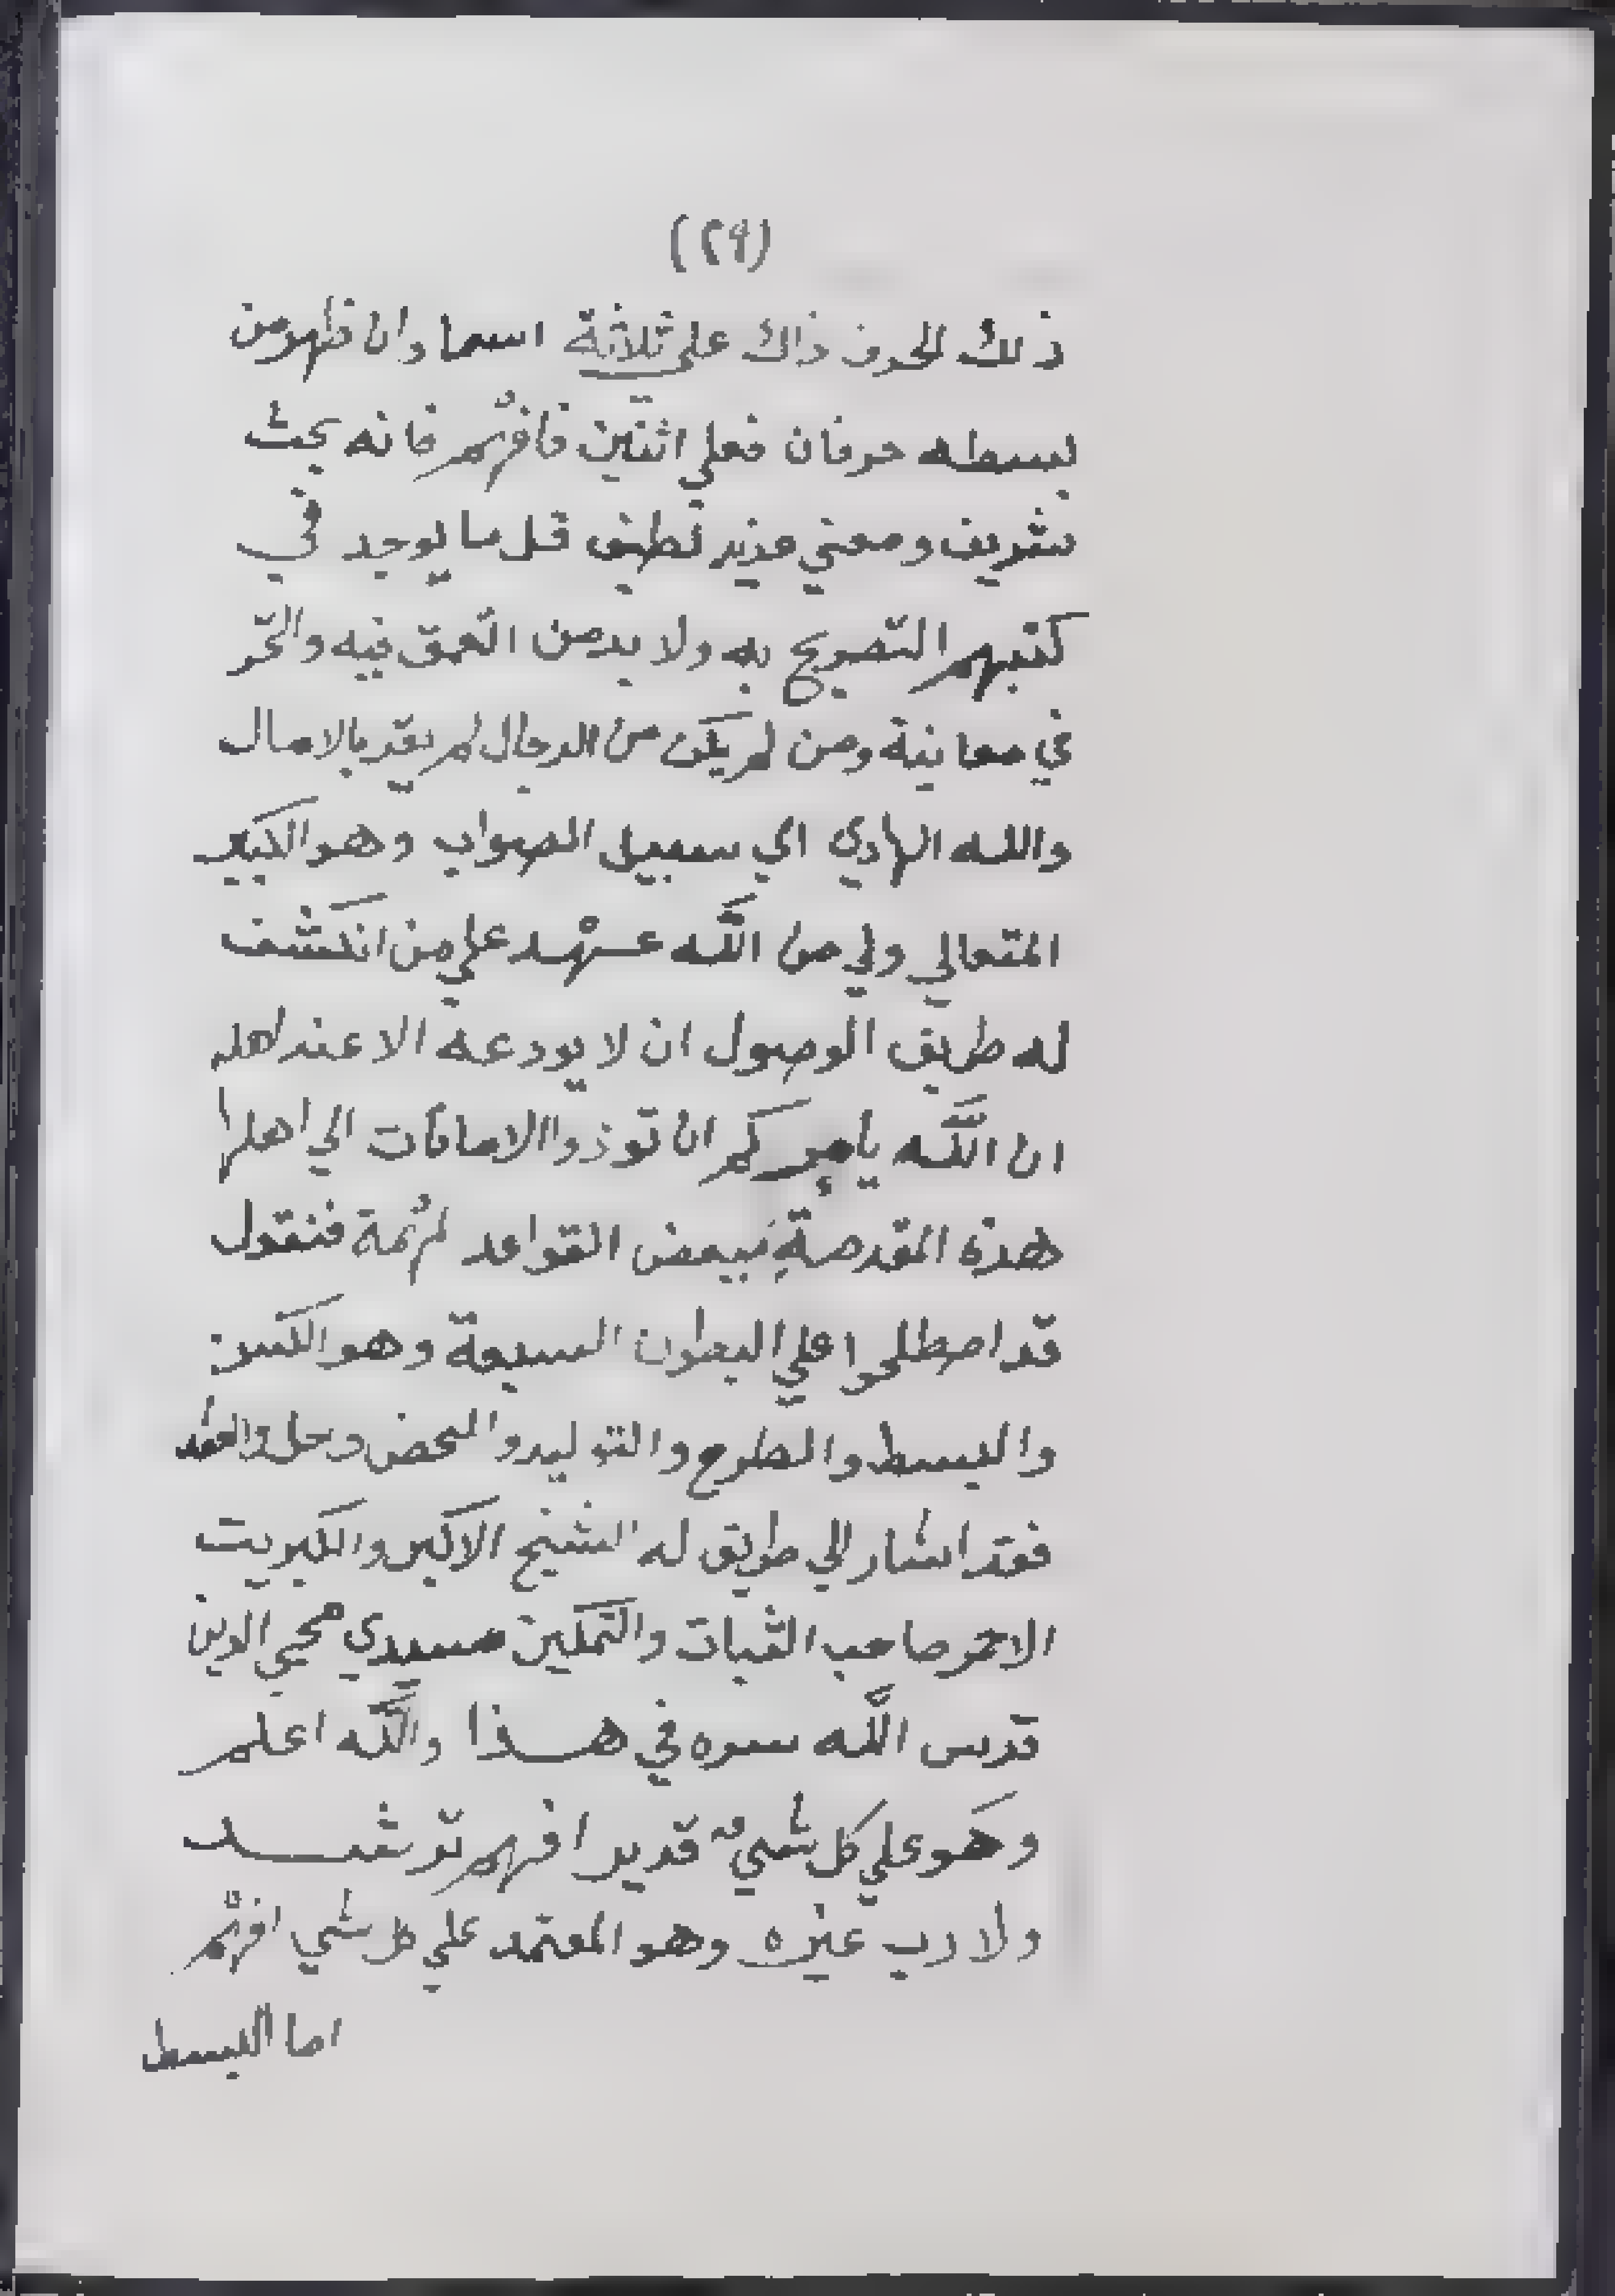 (٢٩)
ذلك الحرف ذاك علي ثلاثة اسما وان ظهر من
بسطه حرفان فعلي اثنين فافهم فانه بحث
شريف ومعني عزيز لطيف قل ما يوجد في
كتبهم التصريح به ولا بد من التعمق فيه والتحر
في معانية ومن لم يكن من الرجال لم يقدر بالامال
والله الهادي الي سبيل الصواب وهو الكبير
المتعالي ولي من الله عهد علي من انكشف
له طريق الوصول ان لا يودعه الا عند اهله
ان الله يأمركم ان توذوا الامانات الي اهلها
هذه المقدمة ببعض القواعد لمهمة فنقول
قد اصطلحوا علي البطون السبعة وهو الكسر
والبسط والطرح والتوليد والمحض وحل والعقد
فقد اشار الي طريق له الشيخ الاكبر والكبريت
الاحمر صاحب الثبات والتمكين سيدي محيي الدين
قدس الله سره في هذا والله اعلم
وهو علي كل شيء قدير افهم ترشد
ولا رب غيره وهو المعتمد علي كل شي افهم
اما البسط